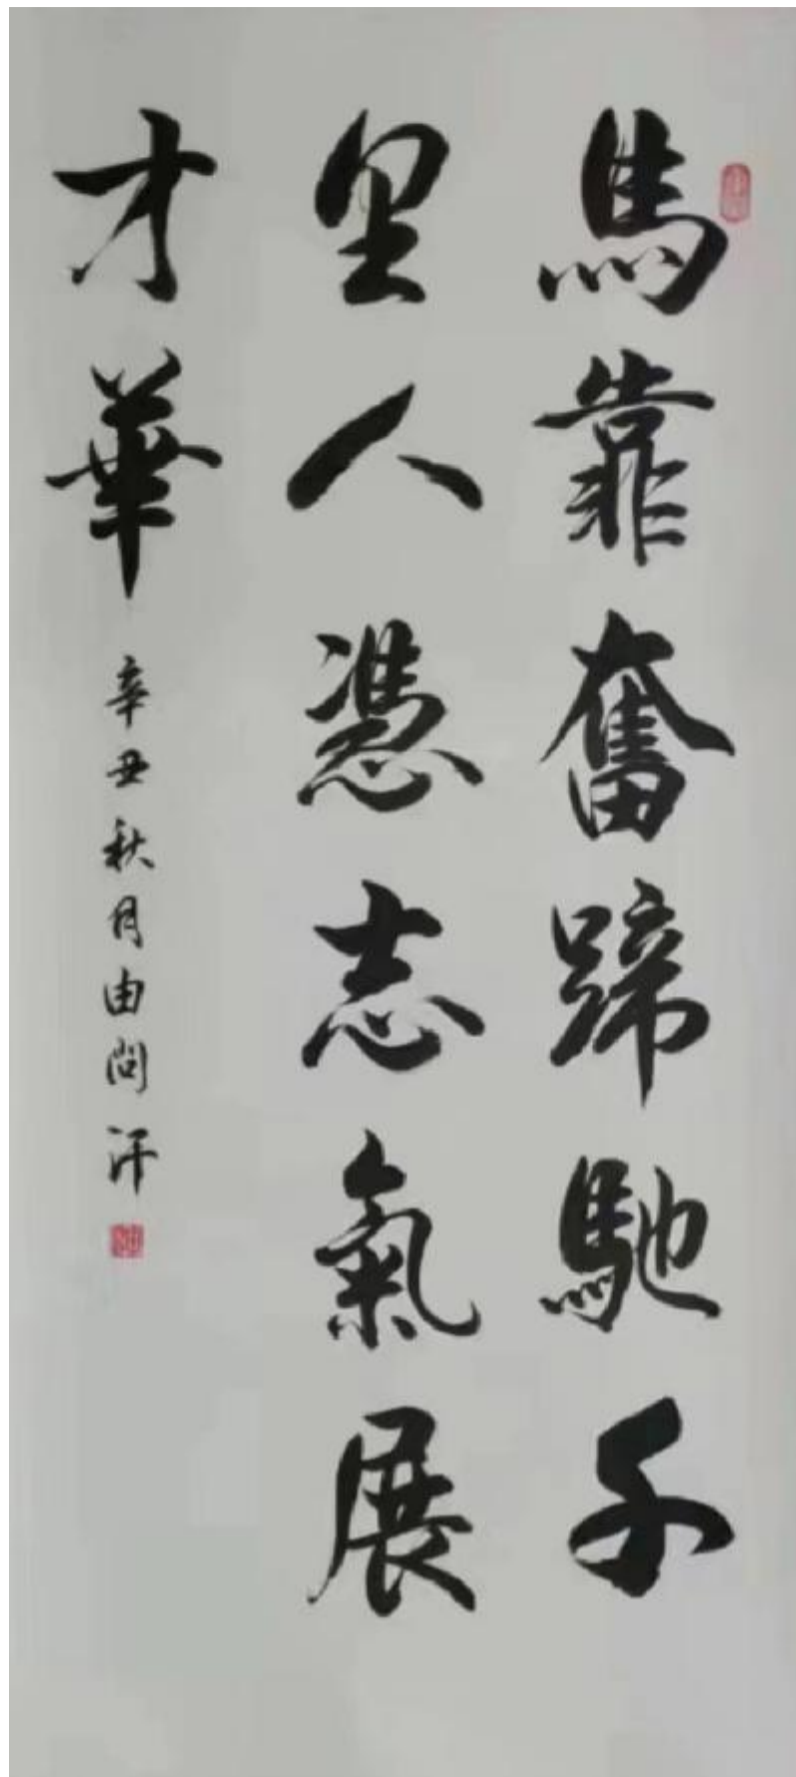 馬靠奮蹄馳千
里人憑志氣展
才華
辛丑秋月由問